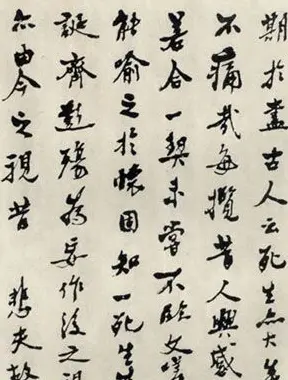 期於盡古人云死生亦大矣
不痛哉每攬昔人興感
若合一契未嘗不臨文嗟
能喻之於懷固知一死生
誕齊彭殤為妄作後之視
亦由今之視昔 悲夫故